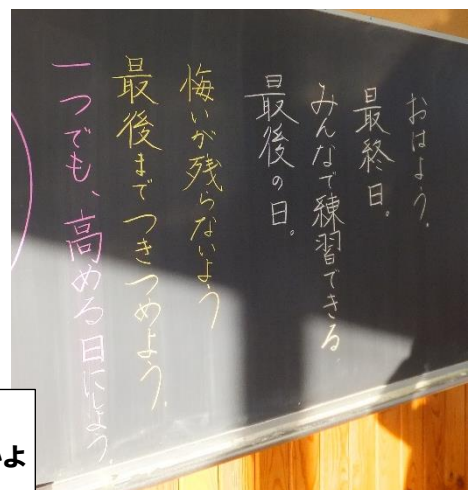 おはよう。
最終日。
みんなで練習できる
最後の日。
悔いが残らないよう
最後までつきつめよう。
一つでも、高める日にしよう。
いよ